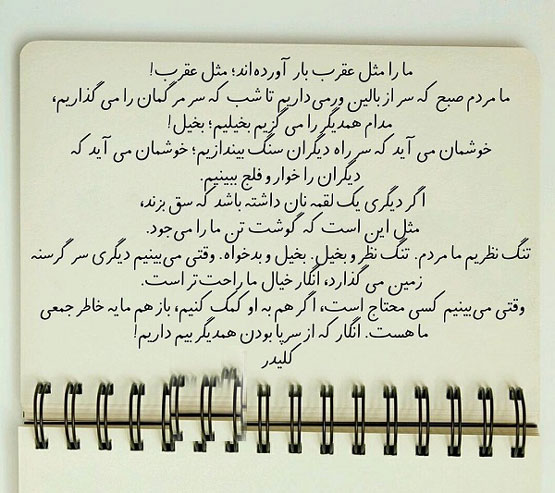 ما را مثل عقرب بار آورده‌اند؛ مثل عقرب!
ما مردم صبح که سر از بالین ورمی‌داریم تا شب که سر مرگمان را می گذاریم،
مدام همدیگر را می گزیم بخیلیم؛ بخیل!
خوشمان می آید که سر راه دیگران سنگ بیندازیم؛ خوشمان می آید که
دیگران را خوار و فلج ببینیم.
اگر دیگری یک لقمه نان داشته باشد که سق بزند،
مثل این است که گوشت تن ما را می‌جود.
تنگ نظریم ما مردم. تنگ نظر و بخیل. بخیل و بدخواه. وقتی می‌بینیم دیگری سر گرسنه
زمین می گذارد، انگار خیال ما راحت‌تر است.
وقتی می‌بینیم کسی محتاج است، اگر هم به او کمک کنیم، باز هم مایه خاطر جمعی
ما هست. انگار که از سرپا بودن همدیگر بیم داریم!
کلیدر